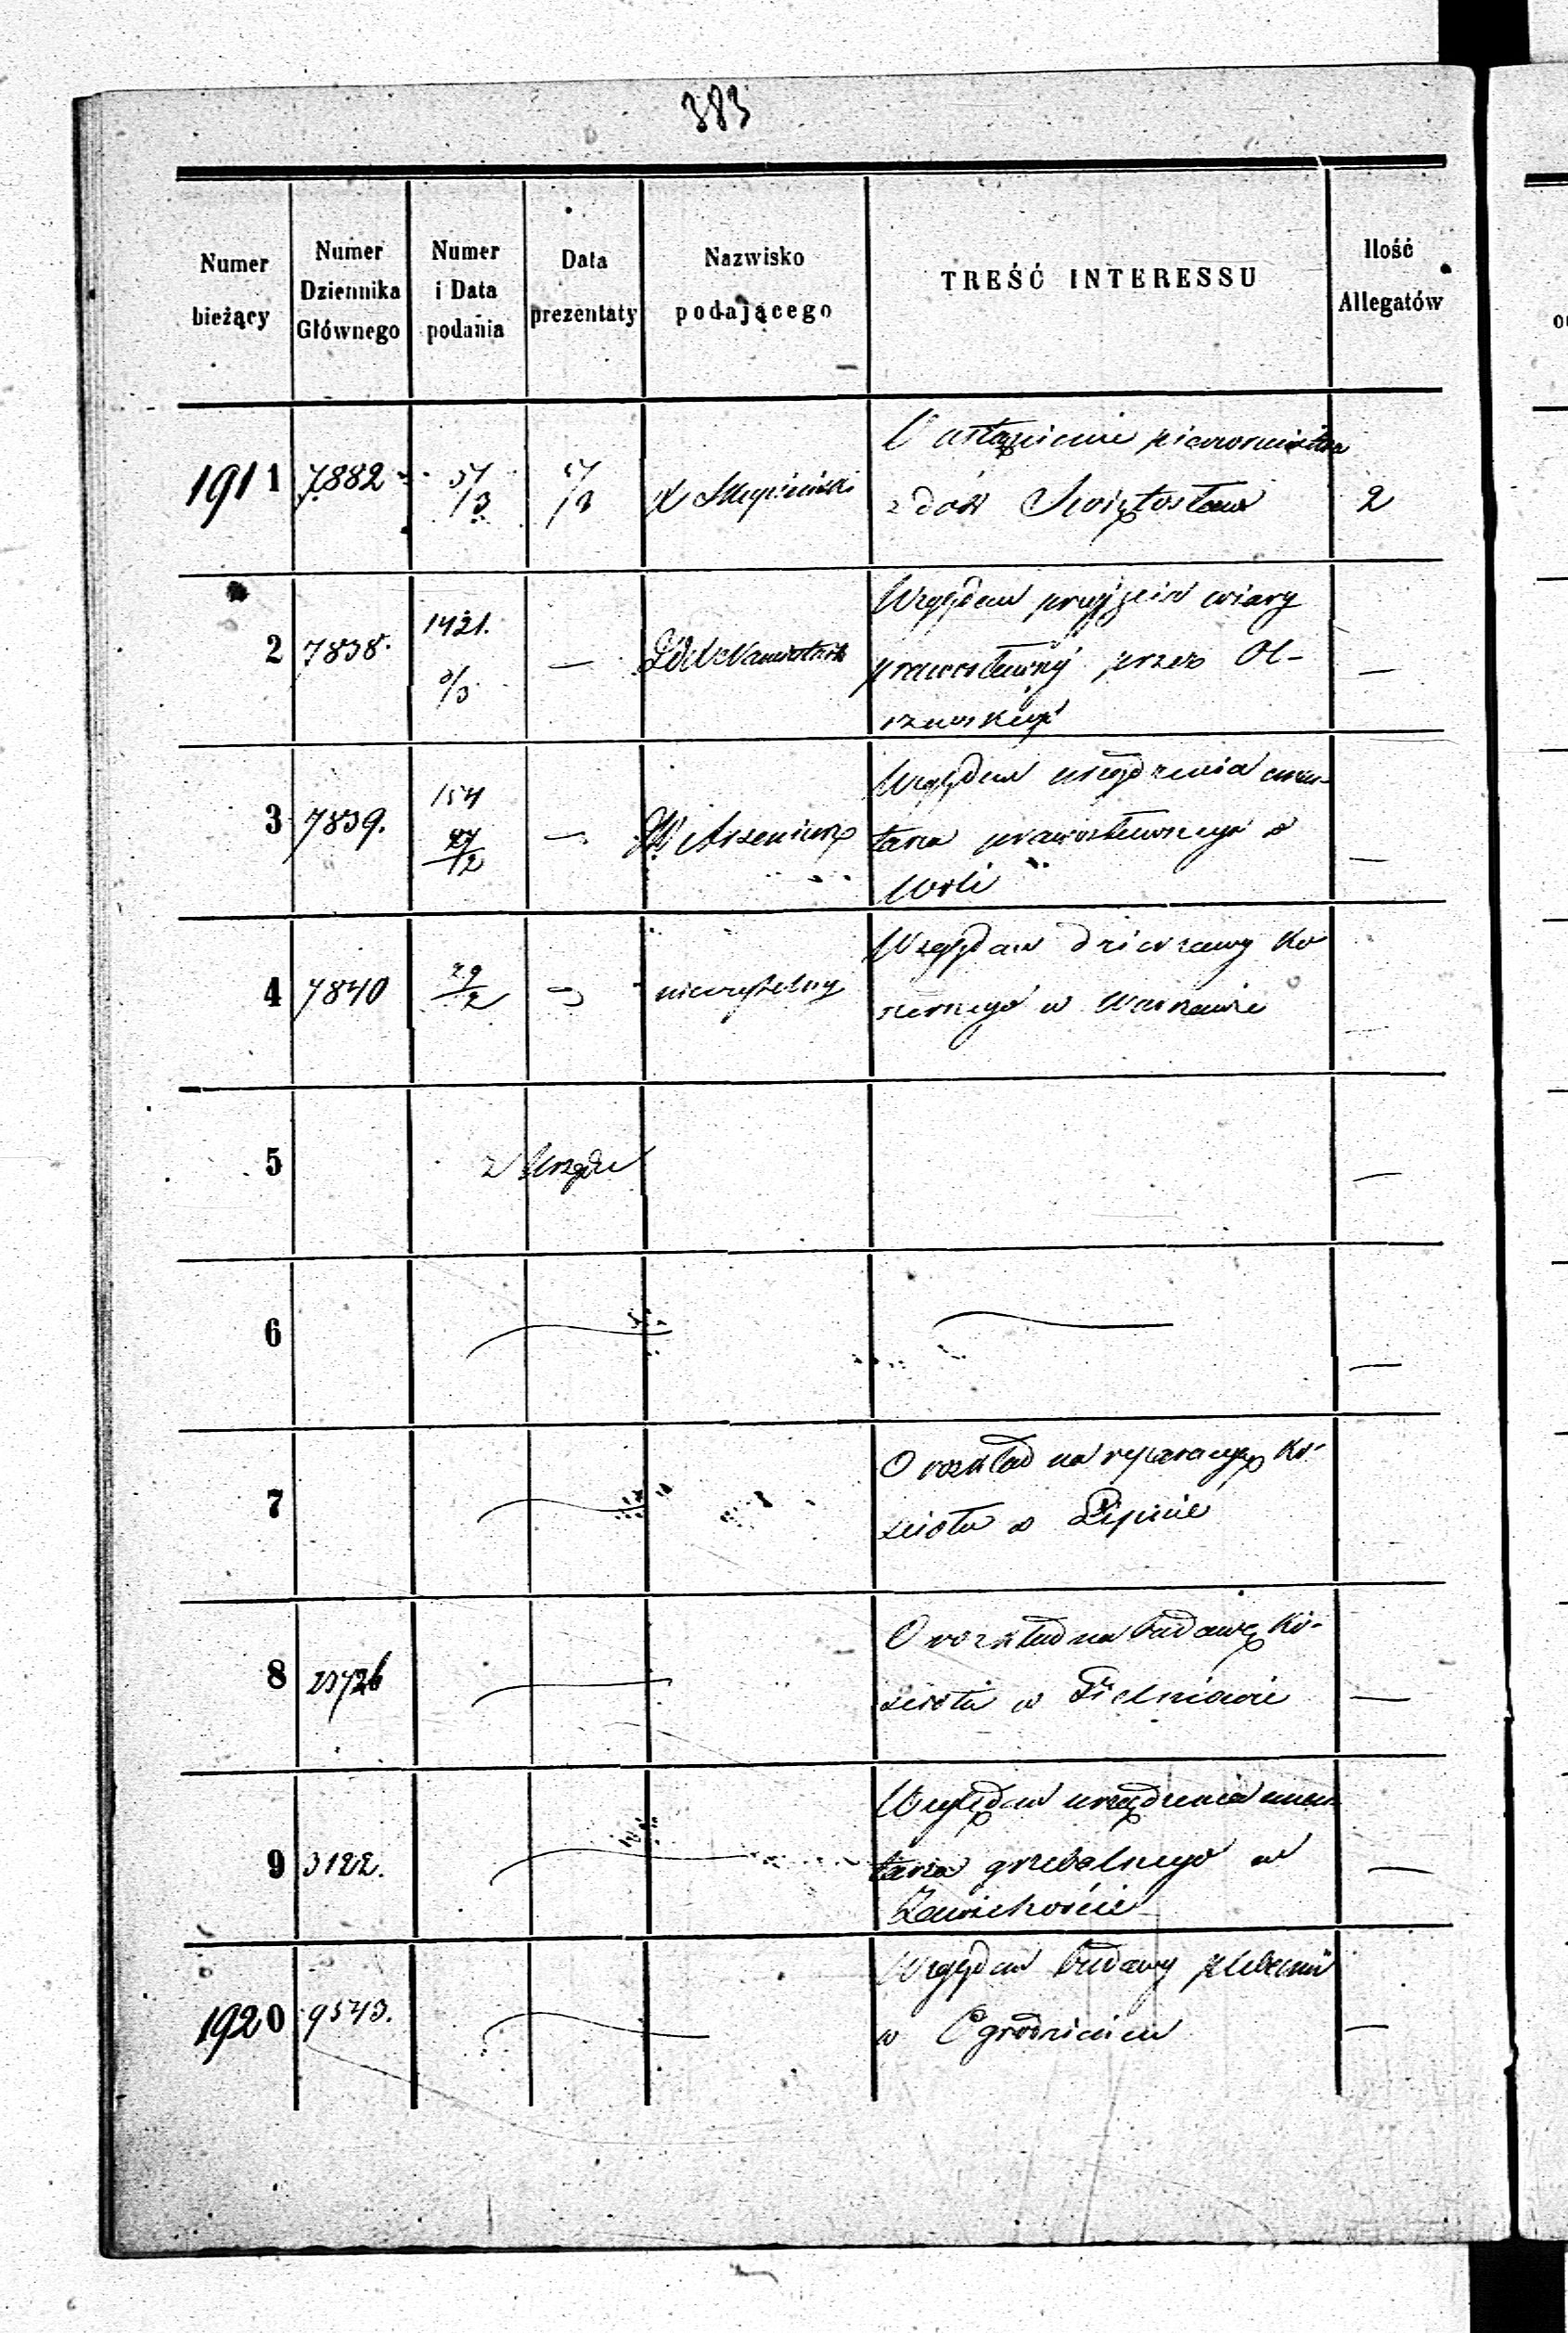 383
Numer bieżący
Numer Dziennika Głównego
Numer i Data podania
Data prezentaty
Nazwisko podającego
TREŚĆ INTERESSU
Ilość Allegatów
1911 7882 5/3 5/3 X
O ustąpienie pierwszeństwa
z dóbr Swiętosław 2
2 7838. 1421. —
Względem przyjęcia wiary
prawosławnej przez Ol-
szewskiego —
3 7839. 154 27/2 — Arseniusz
Względem urządzenia cmen-
tarza prawosławnego w
Woli —
4 7840 29/2 — nieczytelny
Względem dzierżawy Ko
szernego w Warszawie
5 z Urzędu —
6 — — —
7 —
O rozkład na reparacyę Ko-
scioła w Lipinie
8 23726 —
O rozkład na budowę Ko-
scioła w Fielniowie —
9 3122. —
Względem urządzenia cmen
tarza grzebalnego w
Zawichoscie —
1920 9543. —
Względem budowy plebanii
w Ogrodzieńcu —